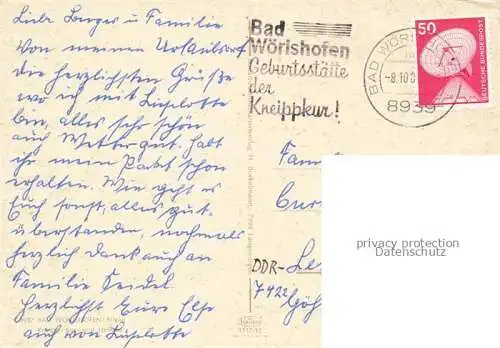 Liebe Berger u Familie
Von meinen Urlaubsort
die herzlichsten Grüße
wo ich mit Liselotte
bin, alles sehr schön
auch Wetter gut. Habt
ihr mein Paket schon
erhalten. Wie geht es
Euch sonst, alles gut
überstanden, nochmals
herzlich Dank auch an
Familie Seidel.
Herzlichst Eure Else
auch von Liselotte
Bad
Wörishofen
Geburtsstätte
der
Kneippkur!
BAD WÖRISHOFEN
-8.10.
8939
50
DEUTSCHE BUNDESPOST
Fam
DDR-
7422
privacy protection
Datenschutz